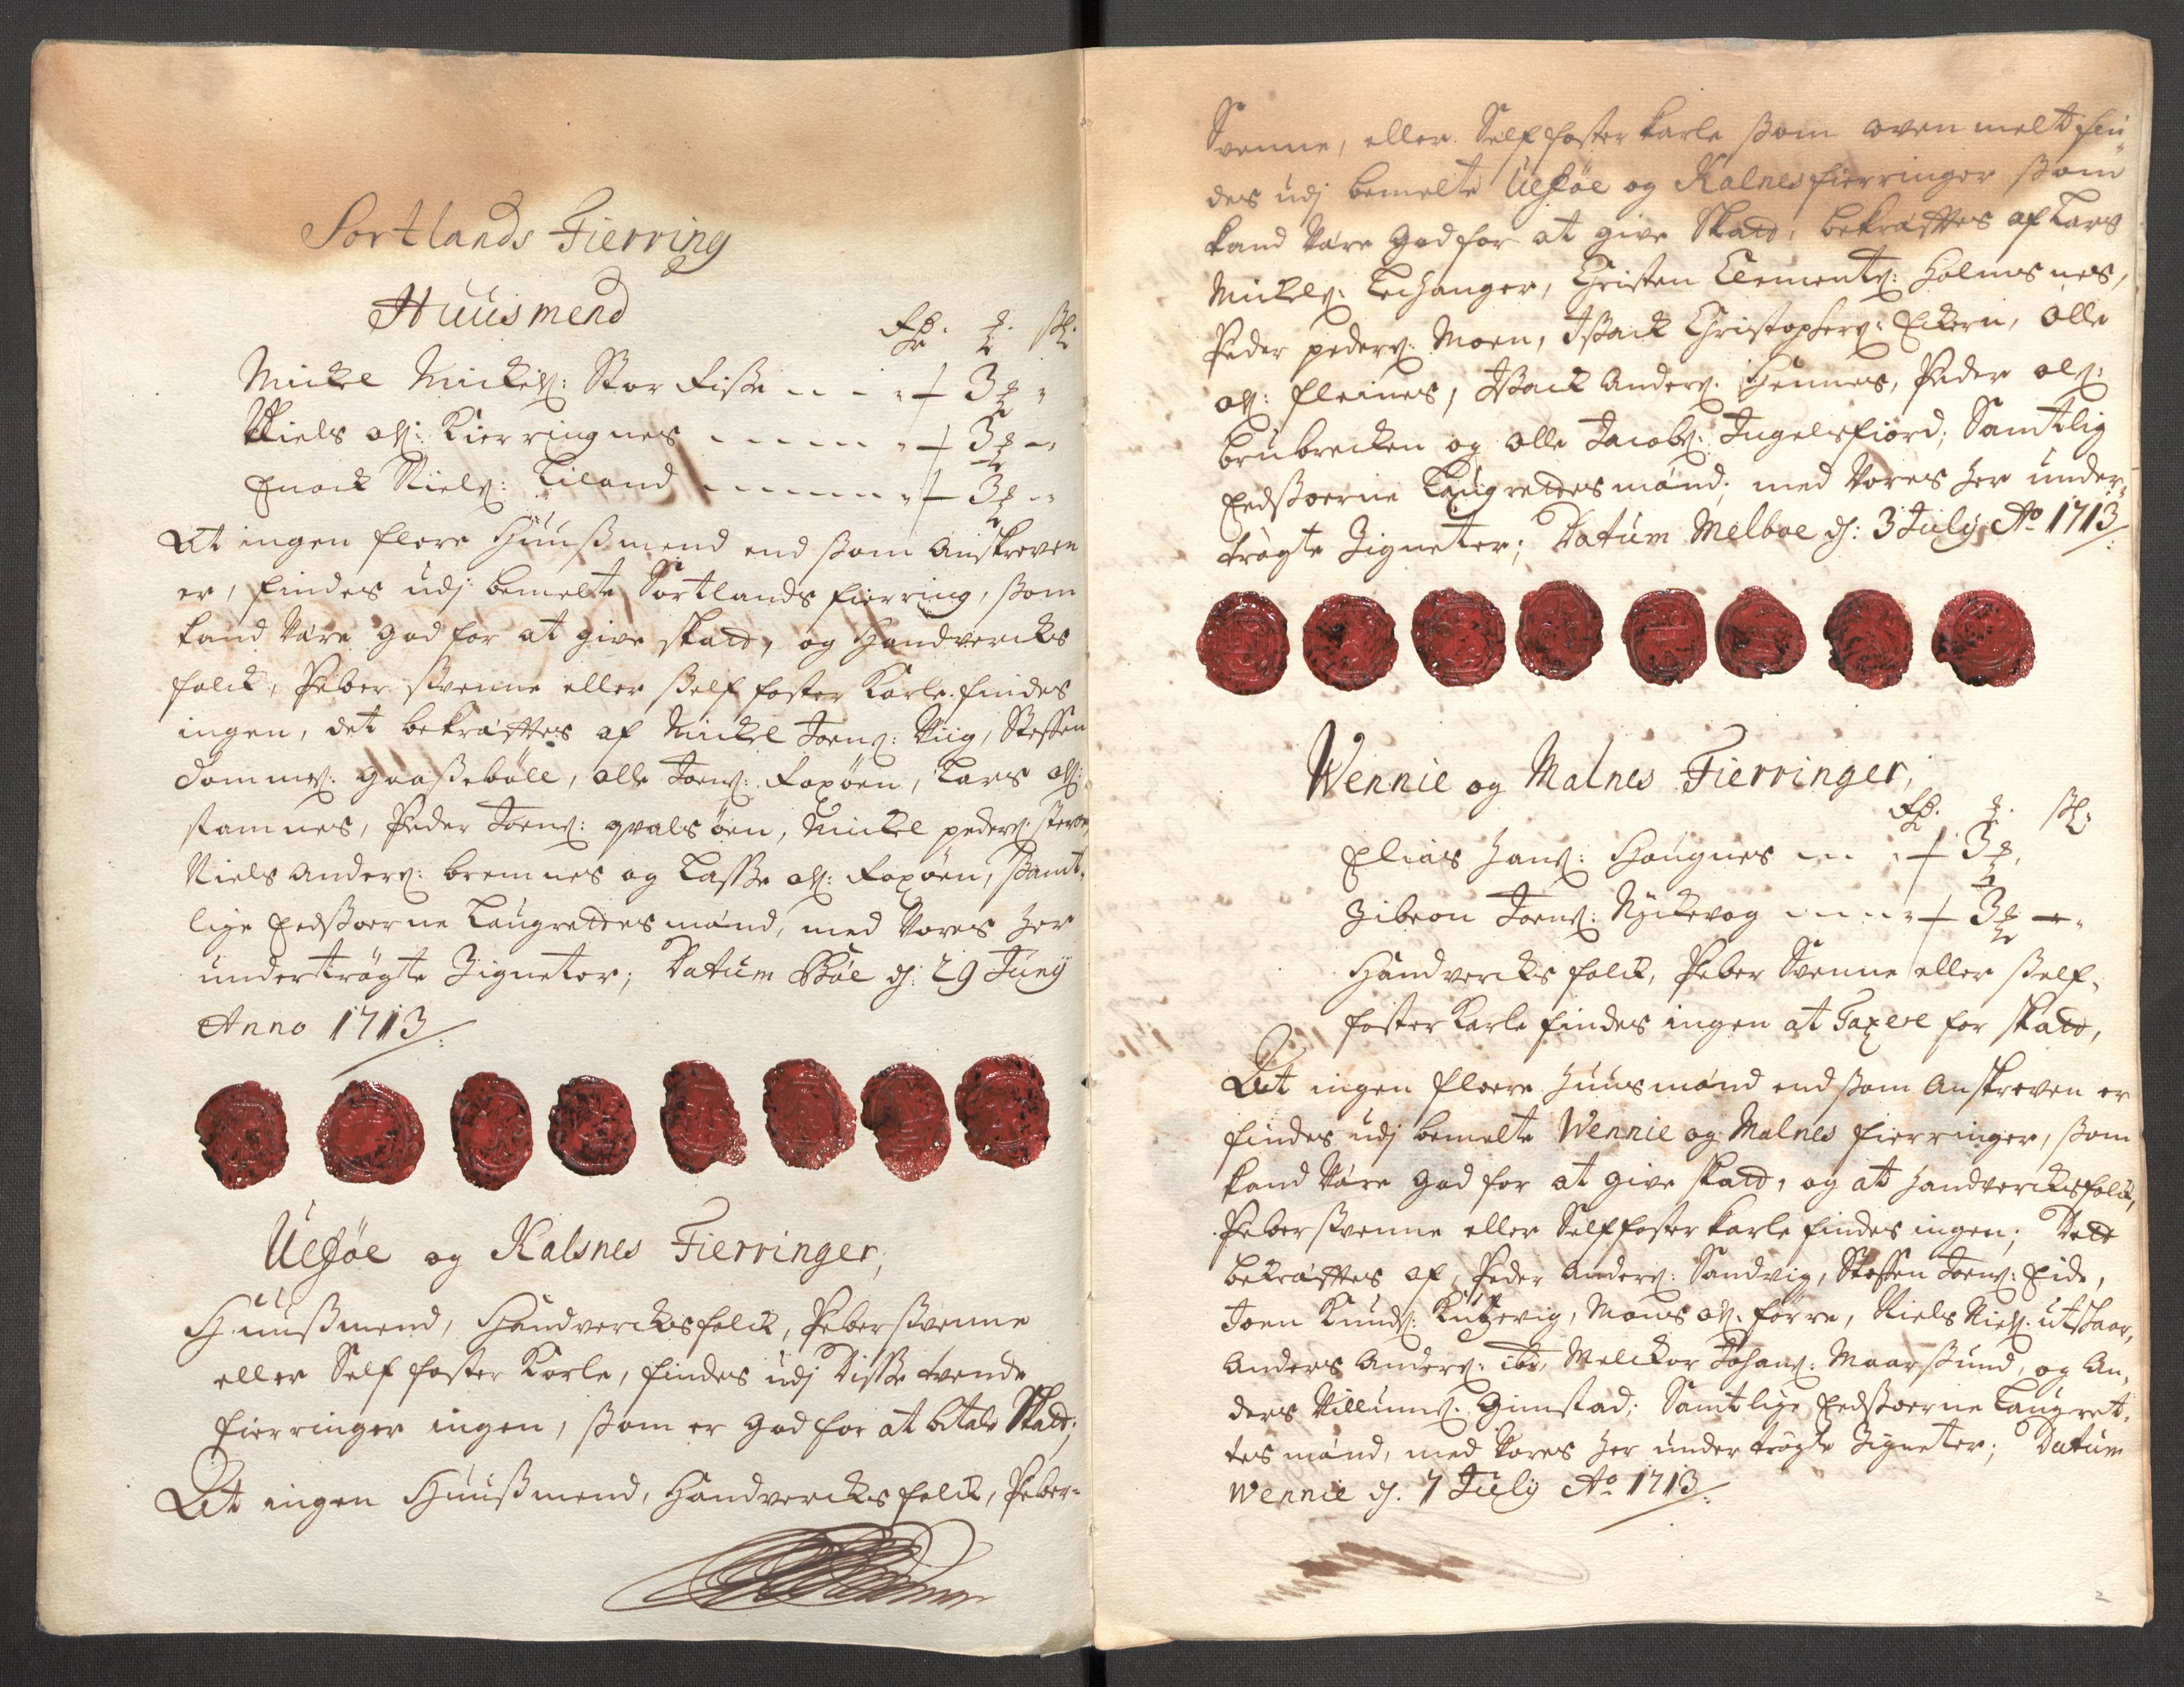 Sortlands Fierring
Huusmend
Mickel Mickels: Stor Fisße - - - 3
Niels ols: Kierringnes - - - - - 3
Enock Niels: Liland - - - - - 3
At ingen flere Huusmend end ßom Anskreven
er, findes udj bemelte Sortlands fierring, ßom
kand være god for at give skatt, og Handvercks
folck, Peber svenne eller ßelf foster Karle findes
ingen, det bekræfftes af Mickel Joens: Viig, Steffen
Tommes: Gaaßebøll, olle Joens: Foxøen, Lars ols:
stamnes, Peder Joens: qvalsøen, Mickel peders:
Niels Anders: bremnes og Lasse ols: Foxøen, ßamt-
lige Eedßoerne Laugrettes mænd, med vores her
undertrøgte Zigneter; Datum Bøe d: 29 Junij
Anno 1713
Ulføe og Kalsnes Fierringer;
Huusmend, Handvercksfolck, Peberßvenne
eller Self foster Karle, findes udj disße tvende
fierringer ingen, ßom er god for at betale Skatt;
At ingen Huusmend, Handvercks folck, Peber-
Svenne, eller Self foster karle ßom oven melt fin
des udj bemelte Ulføe og Kalnes fierringer ßom
kand være god for at give Skatt, bekræfftes af Lars
Mickels: Lechanger, Christen Clements: Holmsnes,
Peder peders: Moen, Isßack Christophers: Eckern, olle
ols: fleines, Isack Anders: Hennes, Peder ols:
brubrecken og olle Jacobs: Ingelsfiord; Samtlig
Eedßoerne Laugrettes mænd; med vores her under-
trøgte Zigneter; Datum Melboe d: 3 July Ao 1713
Wennie og Malnes Fierringer;
Elias Hans: Haugnes - - - 3
Zibeon Joens: Nyckevog - - - - 3
Handvercks folck, Peber Svenne eller ßelf-
foster Karle findes ingen at Taxere for skatt,
At ingen fleere Huusmænd end ßom Anskreven er
findes udj bemelte Wennie og Malnes fierringer, ßom
kand være god for at give skatt, og att Handvercksfolck,
Peberßvenne eller Selffoster karle findes ingen; Dett
bekræfftes af, Peder Anders: Sandvig, Steffen Joens: Eide,
Joen Knuds: Kutzevig, Mons ols: førre, Niels Niels: utskaar,
Anders Anders: ibd, Melckor Johans: Maarsund, og An-
ders Villums: Gimstad; Samtlige Eedßoerne Laugret-
tes mænd, med vores her undertrøgte Zigneter; Datum
Wennie d: 7 July Ao 1713
2